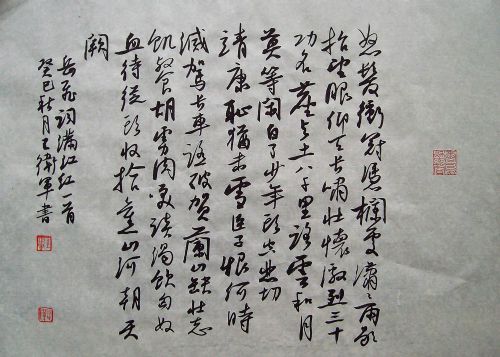 怒髮衝冠憑欄處瀟瀟雨歇
抬望眼仰天長嘯壯懷激烈三十
功名塵與土八千里路雲和月
莫等閑白了少年頭空悲切
靖康恥猶未雪臣子恨何時
滅駕長車踏破賀蘭山缺壯志
飢餐胡虜肉笑談渴飲匈奴
血待從頭收拾舊山河朝天
闕
岳飛詞滿江紅一首
癸巳秋月王衛軍書